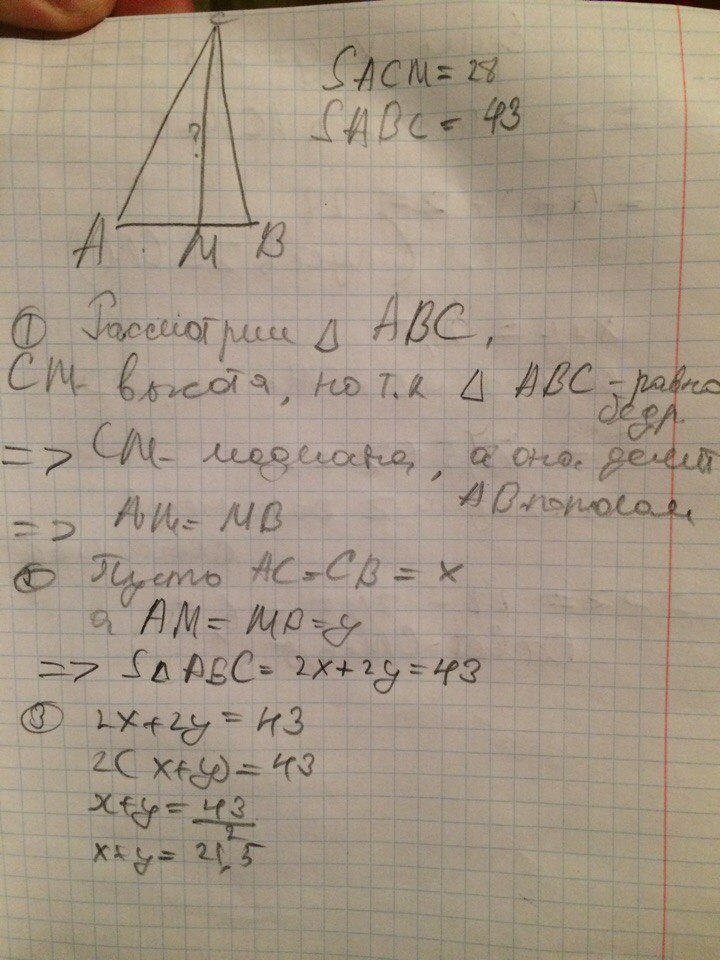 C
SACM = 28
SABC = 43
?
A M B
① Рассмотрим △ ABC,
CM - высота, но т.к △ ABC - равно
бедр.
=> CM - медиана, а она делит
AB пополам
=> AM = MB
② Пусть AC = CB = x
а AM = MB = y
=> S△ABC = 2x+2y = 43
③ 2x+2y = 43
2(x+y) = 43
x+y = 43/2
x+y = 21,5